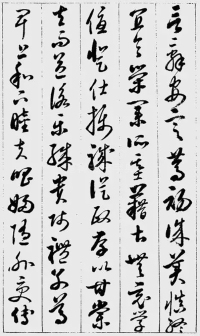 言辭安定篤初誠美慎終
宜令榮業所基藉甚無竟學
優登仕攝職從政存以甘棠
去而益詠樂殊貴賤禮別尊
卑上和下睦夫唱婦隨外受傅